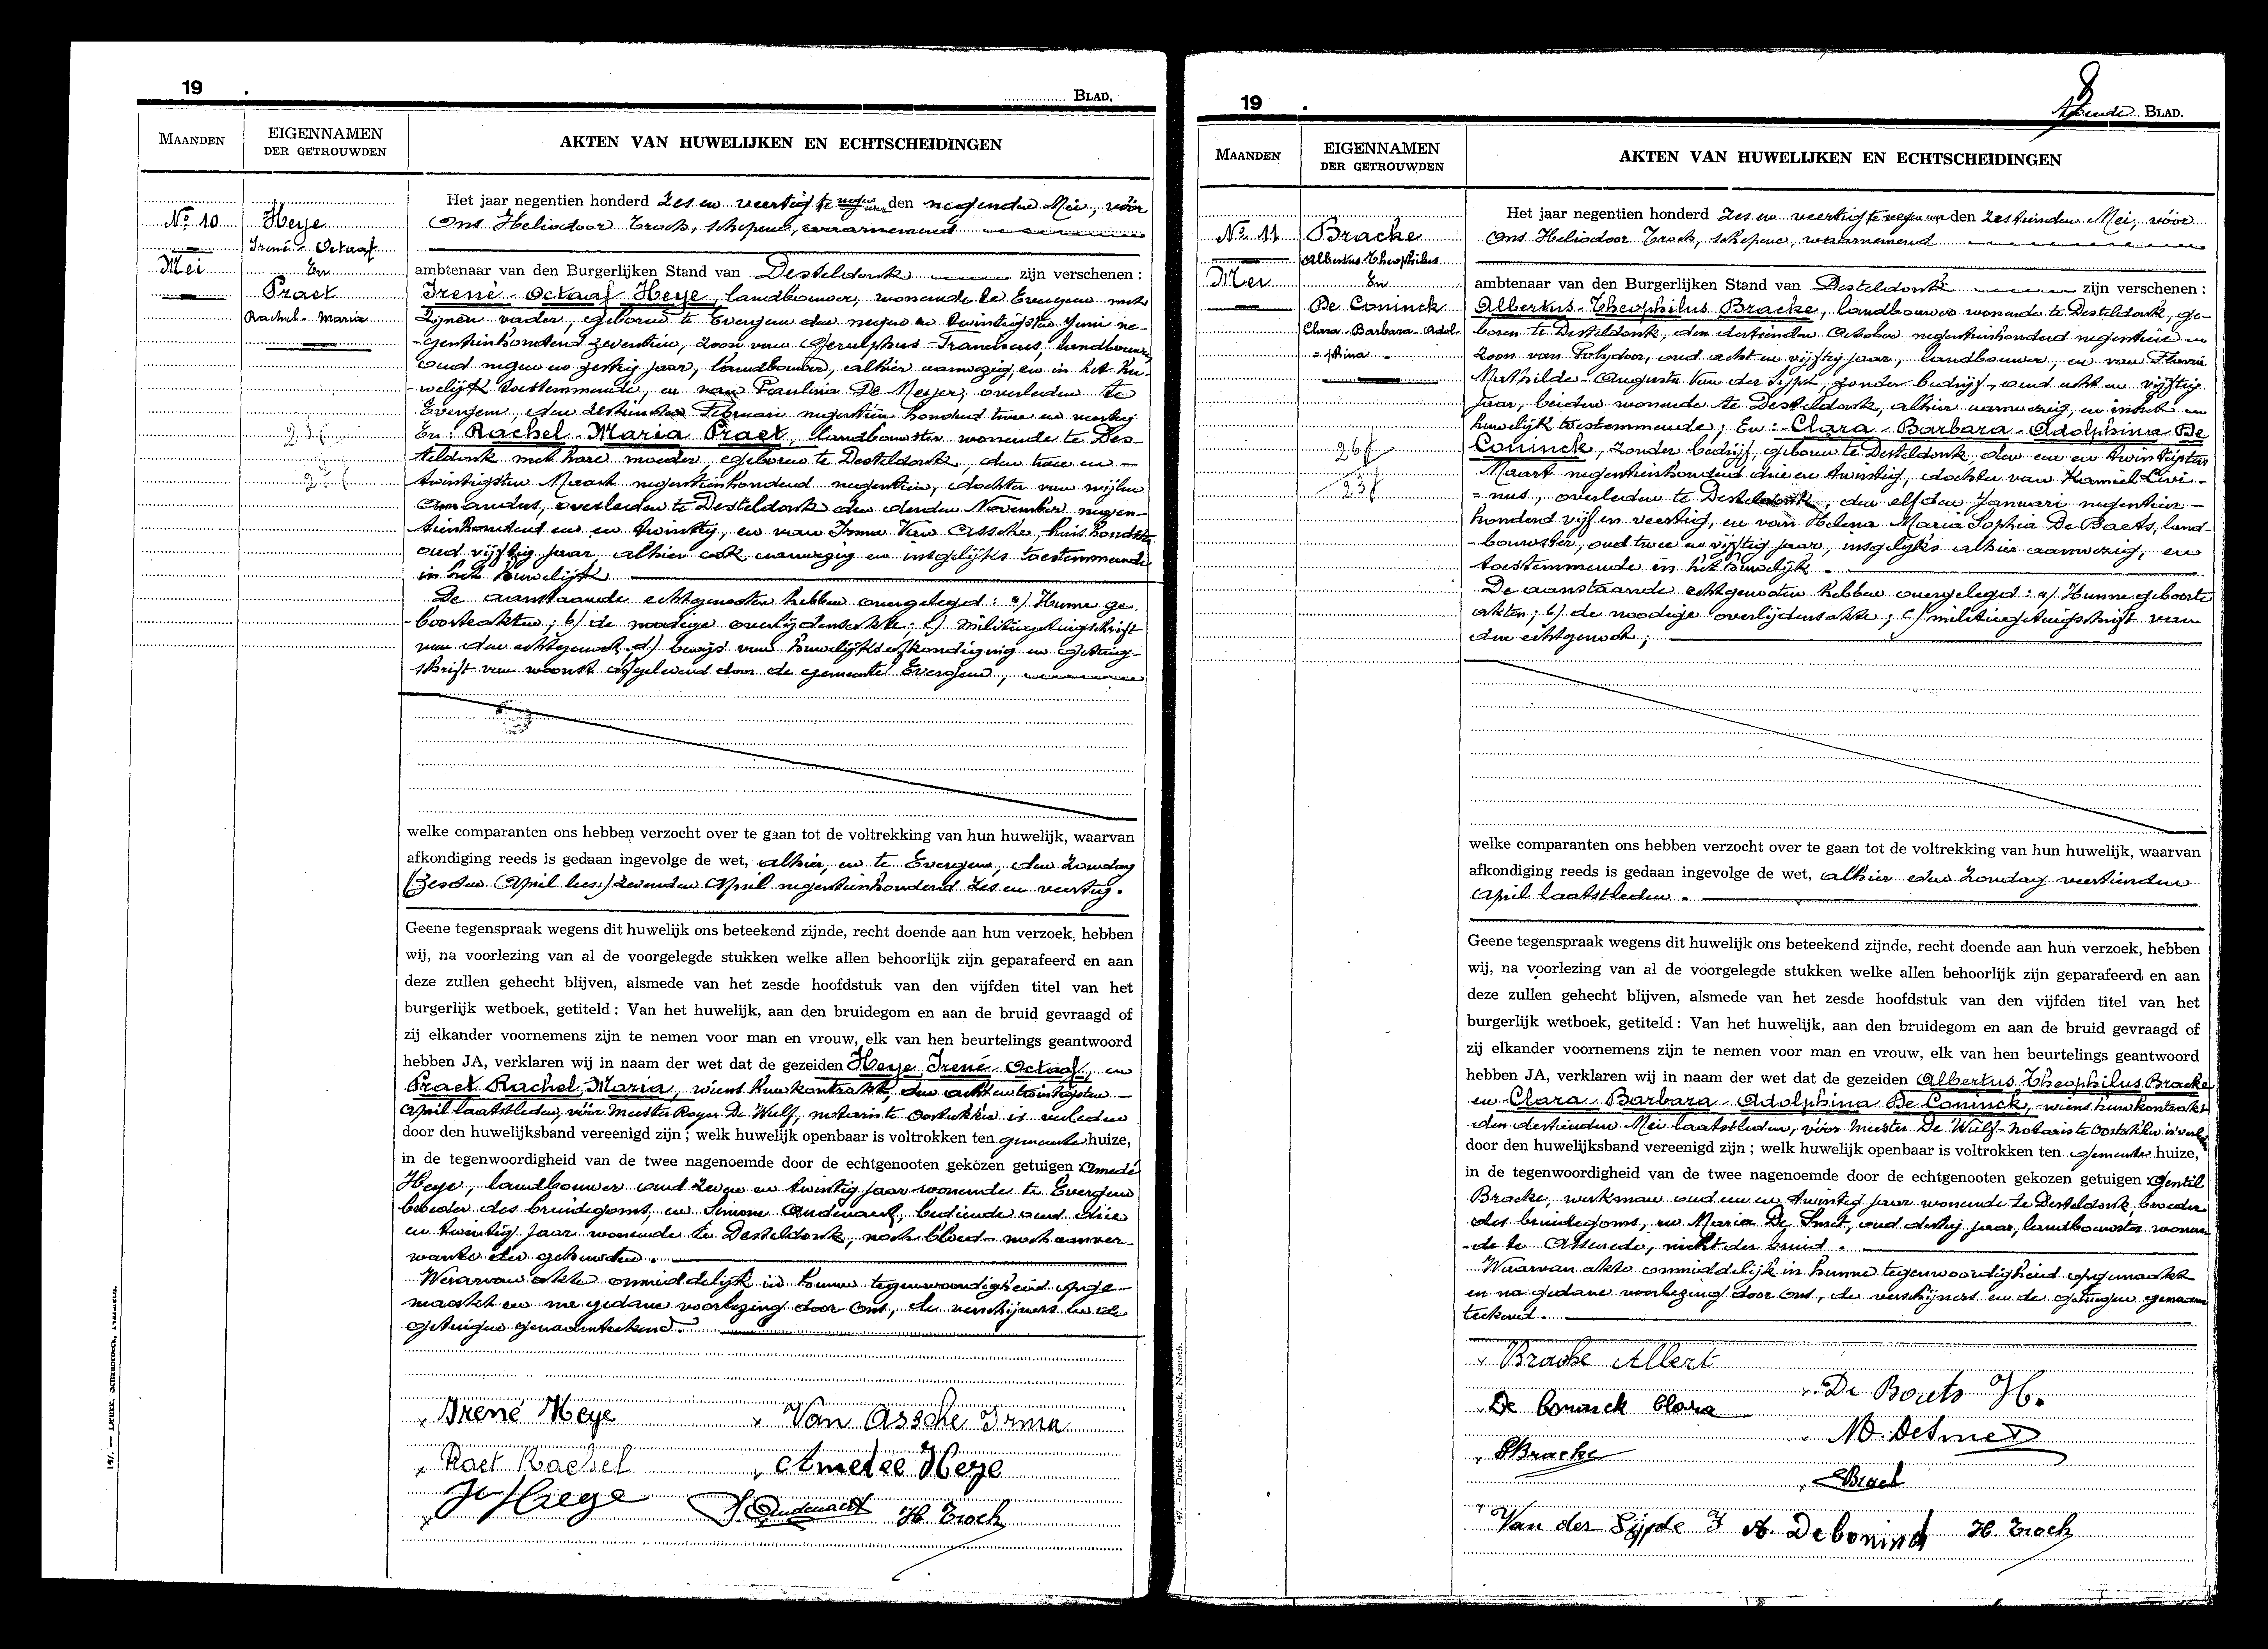 19 .
BLAD.
MAANDEN
EIGENNAMEN
DER GETROUWDEN
AKTEN VAN HUWELIJKEN EN ECHTSCHEIDINGEN
No 10
Mei
Heye
Irené - Octaaf
En
Praet
Rachel - Maria
Het jaar negentien honderd zes en veertig te negen uur den negenden Mei, vóór
Ons Heliodoor Troch, schepene, waarnemend
ambtenaar van den Burgerlijken Stand van Desteldonk zijn verschenen :
Irené - Octaaf Heye, landbouwer, wonende te Evergem met
zijnen vader, geboren te Evergem den negen en twintigsten Juni ne-
gentienhonderd zeventien, zoon van Gerulphus Franciscus, landbouwer,
oud negen en zestig jaar, landbouwer, alhier aanwezig, en in het hu-
welijk toestemmende, en van Paulina De Meyer, overleden te
Evergem, den zestienden Februari negentien honderd twee en veertig
En : Rachel - Maria Praet, landbouwster wonende te Des-
teldonk met hare moeder, geboren te Desteldonk, den twee en
twintigsten Maart negentienhonderd negentien, dochter van wijlen
Amandus, overleden te Desteldonk den derden November negen-
tienhonderd en en twintig, en van Irma Van Assche, huishoudster
oud vijftig jaar alhier ook aanwezig en insgelijks toestemmende
in het huwelijk
De aanstaande echtgenooten hebben overgelegd : a) Hunne ge-
boorteakten ; b) de noodige overlijdensakte ; c) militiegetuigschrift
van den echtgenoot, d) bewijs van huwelijksafkondiging en getuig-
schrift van woonst afgeleverd door de gemeente Evergem,
welke comparanten ons hebben verzocht over te gaan tot de voltrekking van hun huwelijk, waarvan
afkondiging reeds is gedaan ingevolge de wet, alhier, en te Evergem, den Zondag
(zesden April lees:) zevenden April negentienhonderd zes en veertig.
Geene tegenspraak wegens dit huwelijk ons beteekend zijnde, recht doende aan hun verzoek, hebben
wij, na voorlezing van al de voorgelegde stukken welke allen behoorlijk zijn geparafeerd en aan
deze zullen gehecht blijven, alsmede van het zesde hoofdstuk van den vijfden titel van het
burgerlijk wetboek, getiteld : Van het huwelijk, aan den bruidegom en aan de bruid gevraagd of
zij elkander voornemens zijn te nemen voor man en vrouw, elk van hen beurtelings geantwoord
hebben JA, verklaren wij in naam der wet dat de gezeiden Heye Irené Octaaf, en
Praet Rachel Maria, wiens huwkontrakt, den acht en twintigsten
April laatstleden, vóór Meester Roger De Wulf, notaris te Oostakker is verleden
door den huwelijksband vereenigd zijn ; welk huwelijk openbaar is voltrokken ten gemeente huize,
in de tegenwoordigheid van de twee nagenoemde door de echtgenooten gekozen getuigen : Amedé
Heye, landbouwer oud zeven en twintig jaar wonende te Evergem
broeder des bruidegoms, en Simone Oudenaert, bediende oud drie
en twintig jaar wonende te Desteldonk, noch bloed- noch aanver-
wante der gehuwden.
Waarvan akte onmiddelijk in hunne tegenwoordigheid opge-
maakt en na gedane voorlezing door Ons, de verschijners en de
getuigen genaamteekend.
Irené Heye
Van Assche Irma
Praet Rachel
Amedee Heye
Heye
S. Oudenaert
H. Troch
147. — Drukk. Schaubroeck, Nazareth.
19 .
8
Achtste BLAD.
MAANDEN
EIGENNAMEN
DER GETROUWDEN
AKTEN VAN HUWELIJKEN EN ECHTSCHEIDINGEN
No 11
Mei
Bracke
Albertus Theophilus
En
De Coninck
Clara - Barbara - Adol-
- phina
26 j
23 j
Het jaar negentien honderd zes en veertig te negen uur den zestienden Mei, vóór
Ons Heliodoor Troch, schepene, waarnemend
ambtenaar van den Burgerlijken Stand van Desteldonk zijn verschenen :
Albertus - Theophilus Bracke, landbouwer wonende te Desteldonk, ge-
boren te Desteldonk, den dertienden October negentienhonderd negentien
zoon van Polydoor, oud acht en vijftig jaar, landbouwer, en van Flavie
Mathilde - Augusta Van der Sypt, zonder bedrijf, oud acht en vijftig
jaar, beiden wonende te Desteldonk, alhier aanwezig, en in het
huwelijk toestemmende ; En : Clara - Barbara - Adolphina De
Coninck, zonder bedrijf, geboren te Desteldonk, den een en twintigsten
Maart negentienhonderd drie en twintig, dochter van Kamiel Livi-
- nus, overleden te Desteldonk, den elfden Januari negentien-
honderd vijf en veertig, en van Helena Maria Sophia De Baets, land-
- bouwster, oud twee en vijftig jaar, insgelijks alhier aanwezig, en
toestemmende in het huwelijk.
De aanstaande echtgenooten hebben overgelegd : a) Hunne geboorte
akten ; b) de noodige overlijdensakte ; c) militiegetuigschrift van
den echtgenoot ;
welke comparanten ons hebben verzocht over te gaan tot de voltrekking van hun huwelijk, waarvan
afkondiging reeds is gedaan ingevolge de wet, alhier den Zondag veertienden
April laatstleden.
Geene tegenspraak wegens dit huwelijk ons beteekend zijnde, recht doende aan hun verzoek, hebben
wij, na voorlezing van al de voorgelegde stukken welke allen behoorlijk zijn geparafeerd en aan
deze zullen gehecht blijven, alsmede van het zesde hoofdstuk van den vijfden titel van het
burgerlijk wetboek, getiteld : Van het huwelijk, aan den bruidegom en aan de bruid gevraagd of
zij elkander voornemens zijn te nemen voor man en vrouw, elk van hen beurtelings geantwoord
hebben JA, verklaren wij in naam der wet dat de gezeiden Albertus Theophilus Bracke
en Clara Barbara Adolphina De Coninck, wiens huwkontrakt
den dertienden Mei laatstleden, vóór meester De Wulf notaris te Oostakker is verleden
door den huwelijksband vereenigd zijn ; welk huwelijk openbaar is voltrokken ten gemeente huize,
in de tegenwoordigheid van de twee nagenoemde door de echtgenooten gekozen getuigen : Gentil
Bracke, werkman oud een en twintig jaar wonende te Desteldonk, broeder
des bruidegoms, en Maria De Smet, oud dertig jaar, landbouwster wonen-
- de te Assenede, nicht der bruid.
Waarvan akte onmiddelijk in hunne tegenwoordigheid opgemaakt
en na gedane voorlezing door Ons, de verschijners en de getuigen genaam
teekend.
Bracke Albert
De Baets H.
De Coninck Clara
M. Desmet
Bracke
Van der Sijpde F
A. De Coninck
H. Troch
147. — Drukk. Schaubroeck, Nazareth.